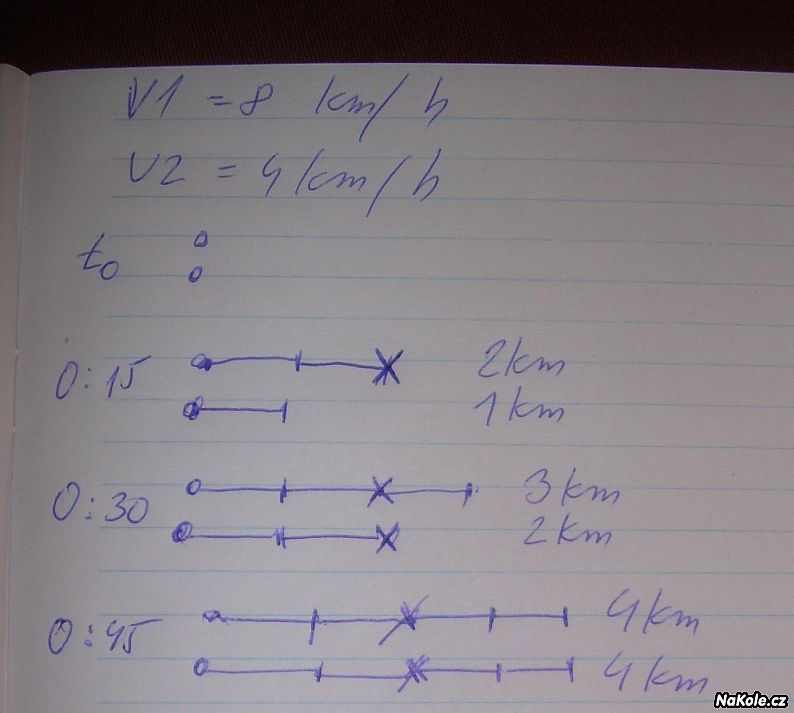 V1 = 8 km/h
V2 = 4 km/h
t0
0:15 2km
1km
0:30 3km
2km
0:45 4km
4km
NaKole.cz